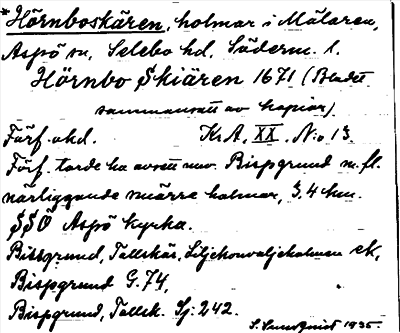 *Hörnboskären, holmar i Mälaren,
Aspö sn, Selebo hd, Söderm. l.
Hörnbo Skiären 1671 (Bladet
sammansatt av kopior)
Förf. okd. K.A. XX. N:o 13.
Förf. torde ha avsett nuv. Bispgrund m. fl.
närliggande smärre holmar, 3.4 km.
SSÖ Aspö kyrka.
Bissgrund, Tallskär, Liljekonvaljeholmen ek,
Bispgrund G. 74,
Bispgrund, Tallsk. Sj: 242.
S. Sundquist 1935.